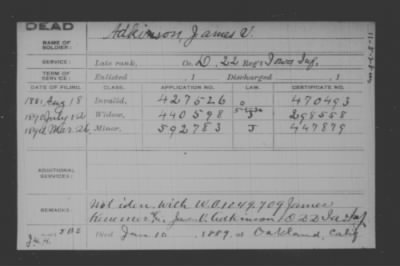 DEAD
NAME OF SOLDIER: Adkinson, James V.
SERVICE: Late rank, Co. D, 22 Reg't Iowa Inf.
TERM OF SERVICE: Enlisted , 1 Discharged , 1
DATE OF FILING. CLASS. APPLICATION NO. LAW. CERTIFICATE NO.
1881 Aug 18 Invalid, 427526 470493
1890 July 12 Widow, 440598 298558
1894 Mar. 26, Minor, 592783 J 447879
ADDITIONAL SERVICES:
REMARKS: Not iden. with W.O. 1049,709 James
Adkinson D 22 Ia Inf
Died Jan 10, 1889, at Oakland, Calif